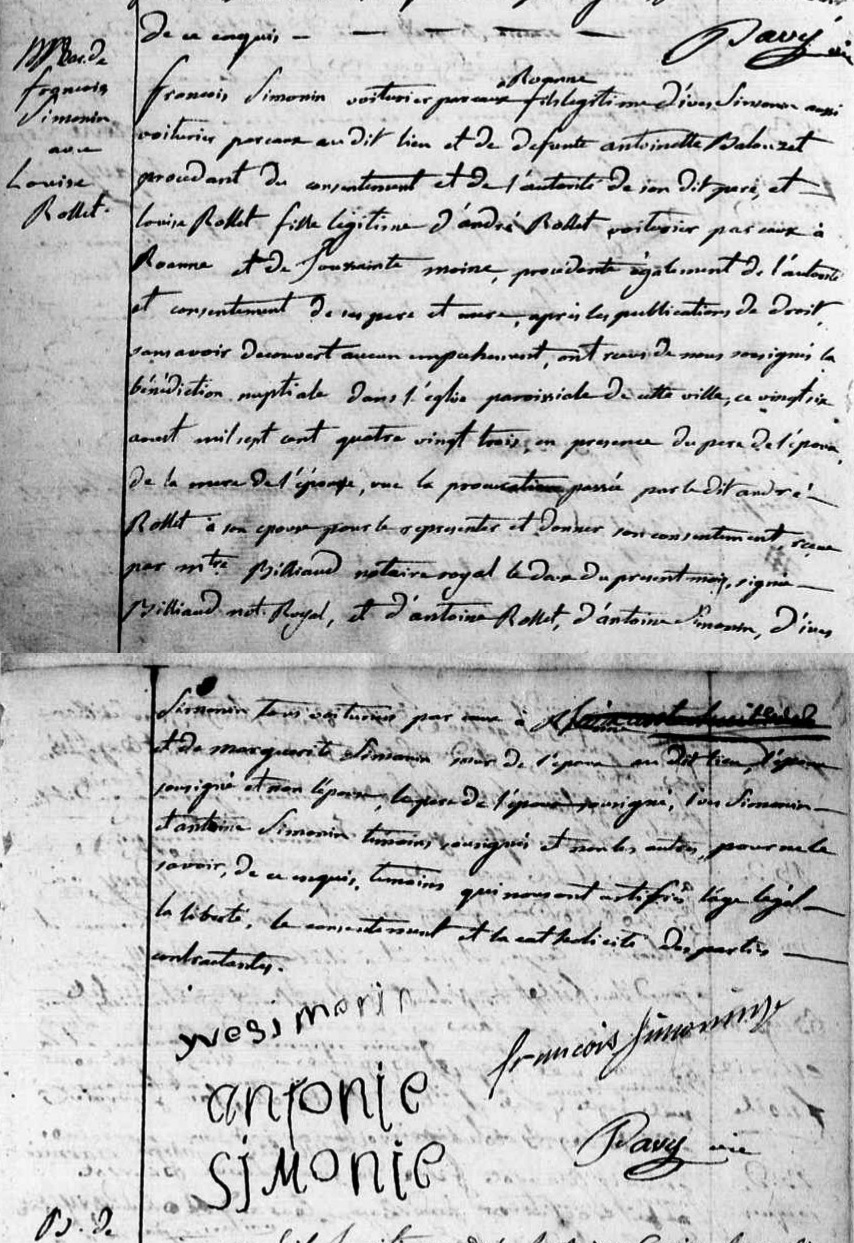 de ce enquis - Pavý vic
Mar. de
francois
Simonin
avec
Louise
Rollet.
à Roanne
francois Simonin voiturier par eaux fils legitime d'ives Simonin aussi
voiturier par eaux au dit lieu et de defunte antoinette Balouzet
procedant du consentement et de l'autorité de son dit pere, et
louise Rollet fille légitime d'andré Rollet voiturier par eaux à
Roanne et de Toussainte moine, procedante également de l'autorité
et consentement de ses pere et mere, après les publications de droit,
sans avoir decouvert aucun empechement, ont recus de nous soussignés la
bénédiction nuptiale dans l'église paroissiale de cette ville, ce vingt six
aoust mil sept cent quatre vingt trois, en presence du pere de l'époux,
de la mere de l'épouse, vue la procuration passée par le dit andré
Rollet à son epouse pour le representer et donner son consentement, reçue
par mtre Billiaud notaire royal le douze du present mois, signé
Billiaud not. Royal, et d'antoine Rollet, d'antoine Simonin, d'ives
Simonin tous voituriers par eaux à
et de marguerite Simonin sœur de l'époux au dit lieu, l'époux
sousigné et non l'épouse, le pere de l'époux sousigné, ives Simonin
et antoine Simonin temoins sousignés et non les autres, pour ne le
savoir, de ce enquis, temoins qui nous ont certifiés l'age légal
la liberté, le consentement et la catholicité des parties
contractantes.
yvesimonin
francois Simonin
antonie
SiMoniE
Pavý vic
B. de